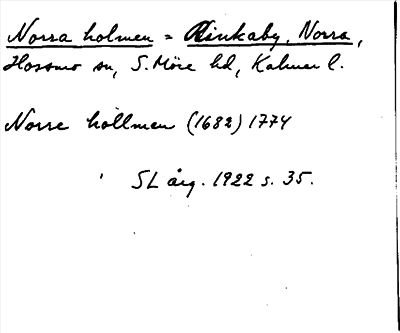 Norra holmen = Rinkaby, Norra,
Hossmo sn, S. Möre hd, Kalmar l.
Norre hollmen (1682) 1774
SL årg. 1922 s. 35.